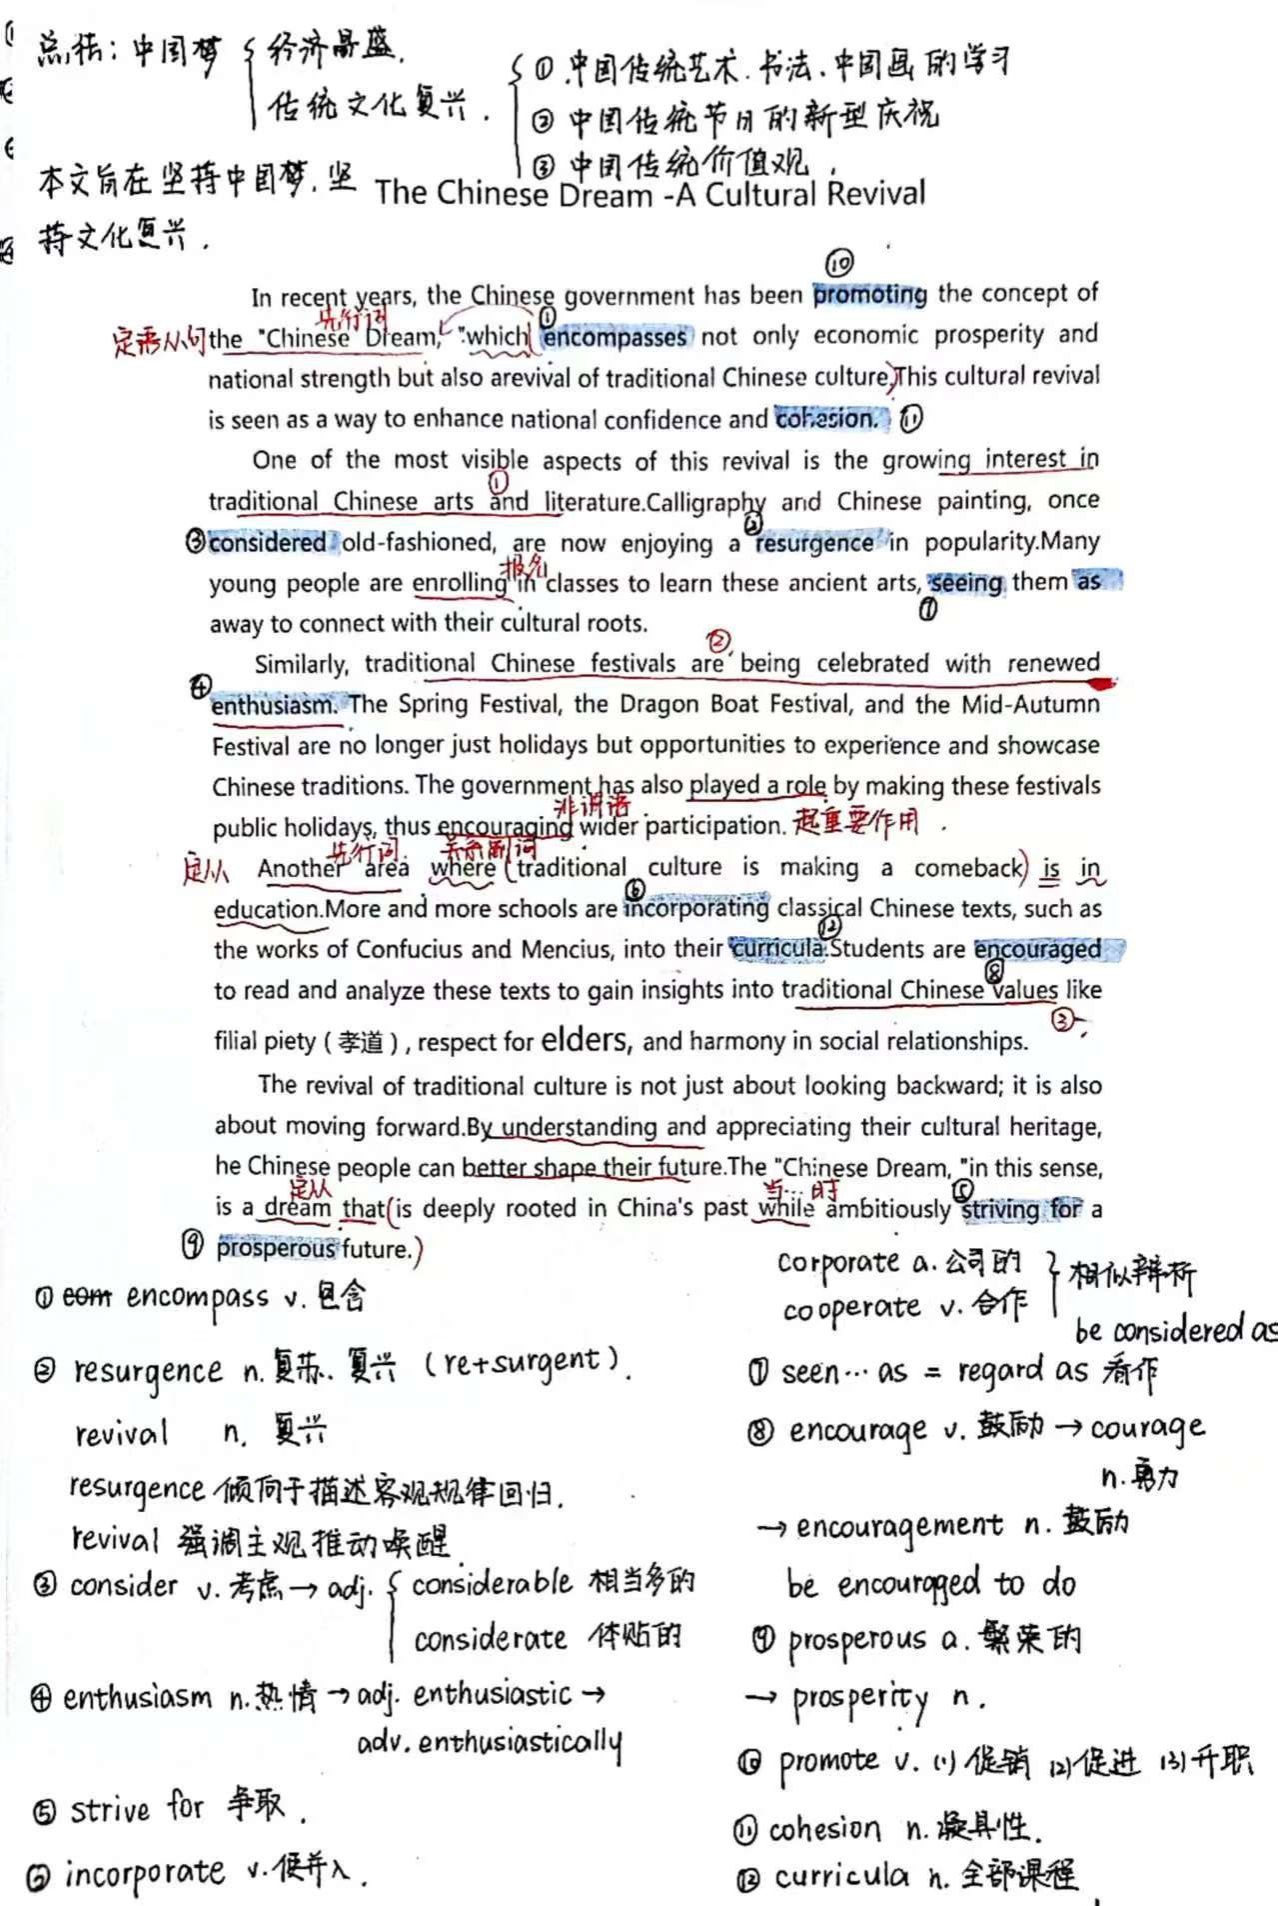 总结：中国梦 { 经济昌盛.
传统文化复兴.
{ ① 中国传统艺术.书法、中国画的学习
② 中国传统节日的新型庆祝
③ 中国传统价值观.
本文旨在坚持中国梦.坚
持文化复兴.
The Chinese Dream -A Cultural Revival
⑩
In recent years, the Chinese government has been promoting the concept of
定语从句 先行词 ①
the "Chinese Dream, "which encompasses not only economic prosperity and
national strength but also arevival of traditional Chinese culture,This cultural revival
is seen as a way to enhance national confidence and cohesion. ⑪
One of the most visible aspects of this revival is the growing interest in
①
traditional Chinese arts and literature.Calligraphy and Chinese painting, once
③ ②
considered old-fashioned, are now enjoying a resurgence in popularity.Many
报名
young people are enrolling in classes to learn these ancient arts, seeing them as
⑦
away to connect with their cultural roots.
②
Similarly, traditional Chinese festivals are being celebrated with renewed
④
enthusiasm. The Spring Festival, the Dragon Boat Festival, and the Mid-Autumn
Festival are no longer just holidays but opportunities to experience and showcase
Chinese traditions. The government has also played a role by making these festivals
非谓语
public holidays, thus encouraging wider participation. 起重要作用.
定从 先行词 关系副词
Another area where (traditional culture is making a comeback) is in
⑥
education.More and more schools are incorporating classical Chinese texts, such as
⑫
the works of Confucius and Mencius, into their curricula.Students are encouraged
⑧
to read and analyze these texts to gain insights into traditional Chinese values like
③
filial piety (孝道), respect for elders, and harmony in social relationships.
The revival of traditional culture is not just about looking backward; it is also
about moving forward.By understanding and appreciating their cultural heritage,
he Chinese people can better shape their future.The "Chinese Dream, "in this sense,
定从 当…时 ⑤
is a dream that (is deeply rooted in China's past while ambitiously striving for a
⑨ prosperous future.)
① encompass v. 包含
② resurgence n. 复苏、复兴 (re+surgent).
revival n. 复兴
resurgence 倾向于描述客观规律回归.
revival 强调主观推动唤醒
③ consider v. 考虑→adj. { considerable 相当多的
considerate 体贴的
④ enthusiasm n.热情→adj. enthusiastic→
adv. enthusiastically
⑤ strive for 争取.
⑥ incorporate v.使并入.
corporate a.公司的 } 相似辨析
cooperate v. 合作
be considered as
⑦ seen…as = regard as 看作
⑧ encourage v. 鼓励→courage
n.勇力
→ encouragement n. 鼓励
be encouraged to do
⑨ prosperous a. 繁荣的
→ prosperity n.
⑩ promote v. (1)促销 (2)促进 (3)升职
⑪ cohesion n.凝具性.
⑫ curricula n. 全部课程